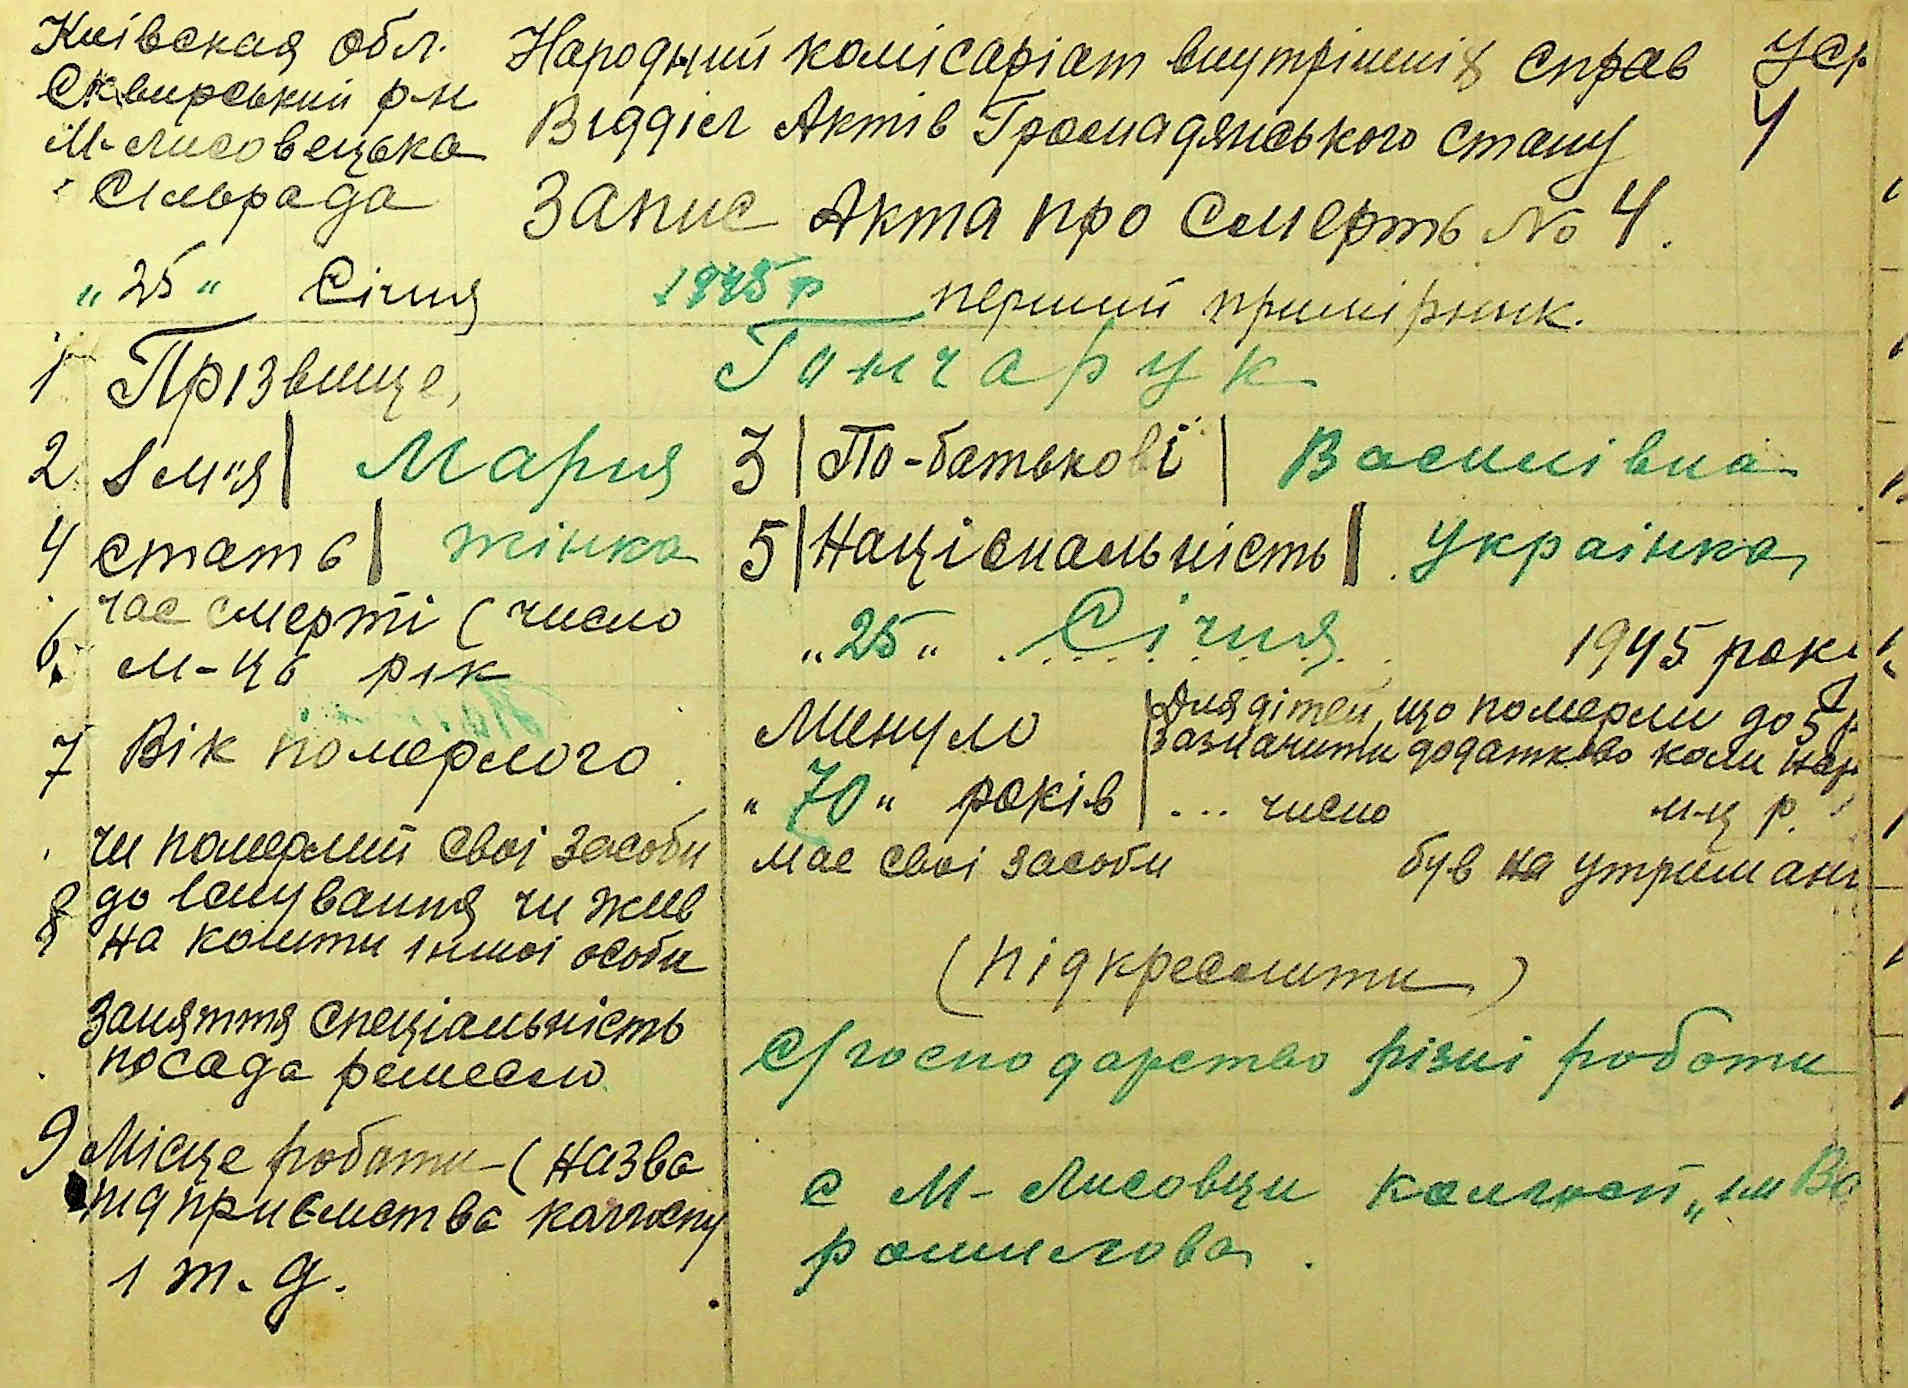 Київская обл.
Сквирський р-н
М-Лисовецька
Сільрада
Народний комісаріат внутрішніх справ УСР
Відділ Актів Громадянського стану 4
Запис Акта про смерть № 4.
„25„ Січня 1945 р перший примірник.
1 Прізвище, Гончарук
2 Ім"я Мария 3 По-батькові Василівна
4 стать жінка 5 Національність Українка
6. час смерті (число
м-ць рік „25„ Січня 1945 року
7 Вік померлого Минуло
„70„ років
Для дітей, що померли до 5 р
зазначити додатково коли нар
... число м-ц р.
8 чи померлий свої засоби
до існування чи жив
на кошти іншої особи
має свої засоби був на утриман
(підкреслити)
Заняття спеціальність
посада ремесло
с/господарство різні роботи
9 Місце роботи (назва
підприємства колгоспу
і т. д.
с М-Лисовци колгосп „им Во
рошилова.